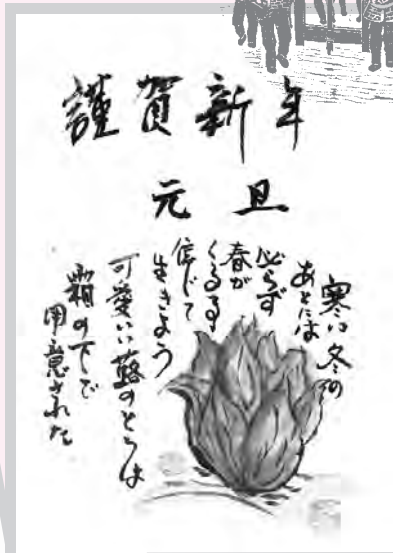 謹賀新年
元旦
寒い冬の
あとには
必らず
春が
くるを
信じて
生きよう
可愛い蕗のとうは
霜の下で
用意された